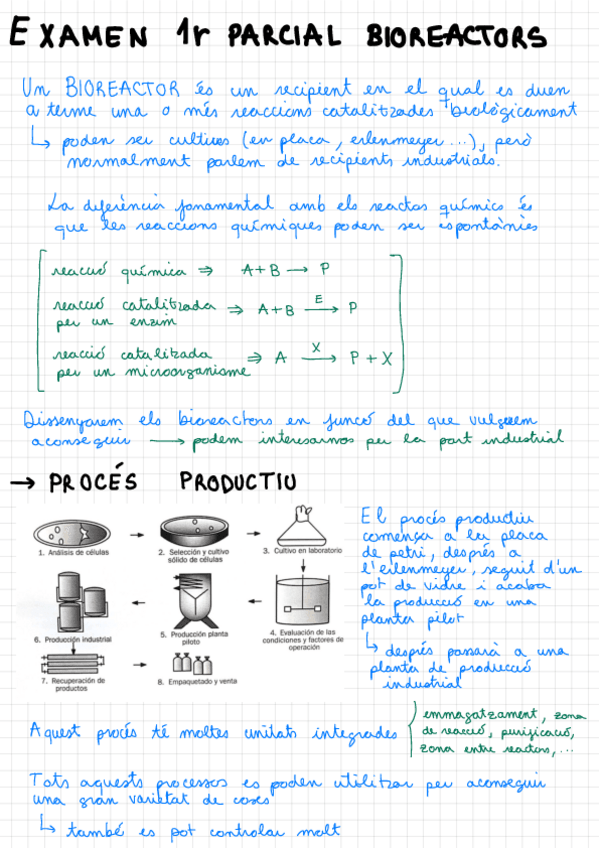 EXAMEN 1r PARCIAL BIOREACTORS
Un BIOREACTOR és un recipient en el qual es duen
a terme una o més reaccions catalitzades biològicament
↳ poden ser cultius (en placa, erlenmeyer...), però
normalment parlem de recipients industrials.
La diferència fonamental amb els reactos químics és
que les reaccions químiques poden ser espontànies
reacció química ⇒ A+B → P
reacció catalitzada ⇒ A+B E→ P
per un enzim
reacció catalitzada ⇒ A X→ P + X
per un microorganisme
Dissenyarem els bioreactors en funció del que vulguem
aconseguir → podem interesarnos per la part industrial
→ PROCÉS PRODUCTIU
1. Análisis de células
2. Selección y cultivo
sólido de células
3. Cultivo en laboratorio
6. Producción industrial
5. Producción planta
piloto
4. Evaluación de las
condiciones y factores de
operación
7. Recuperación de
productos
8. Empaquetado y venta
El procés productiu
comença a la placa
de petri, després a
l'erlenmeyer, seguit d'un
pot de vidre i acaba
la producció en una
planta pilot
↳ després passarà a una
planta de producció
industrial
Aquest procés té moltes unitats integrades
emmagatzament, zona
de reacció, purificació,
zona entre reactors,...
Tots aquests processos es poden utilitzar per aconseguir
una gran varietat de coses
↳ també es pot controlar molt